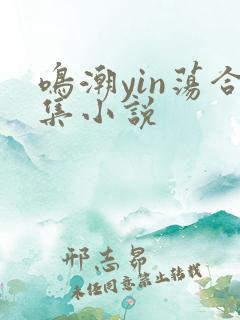 鸣潮yin荡合
集小说
邢志昂
未经同意禁止转载